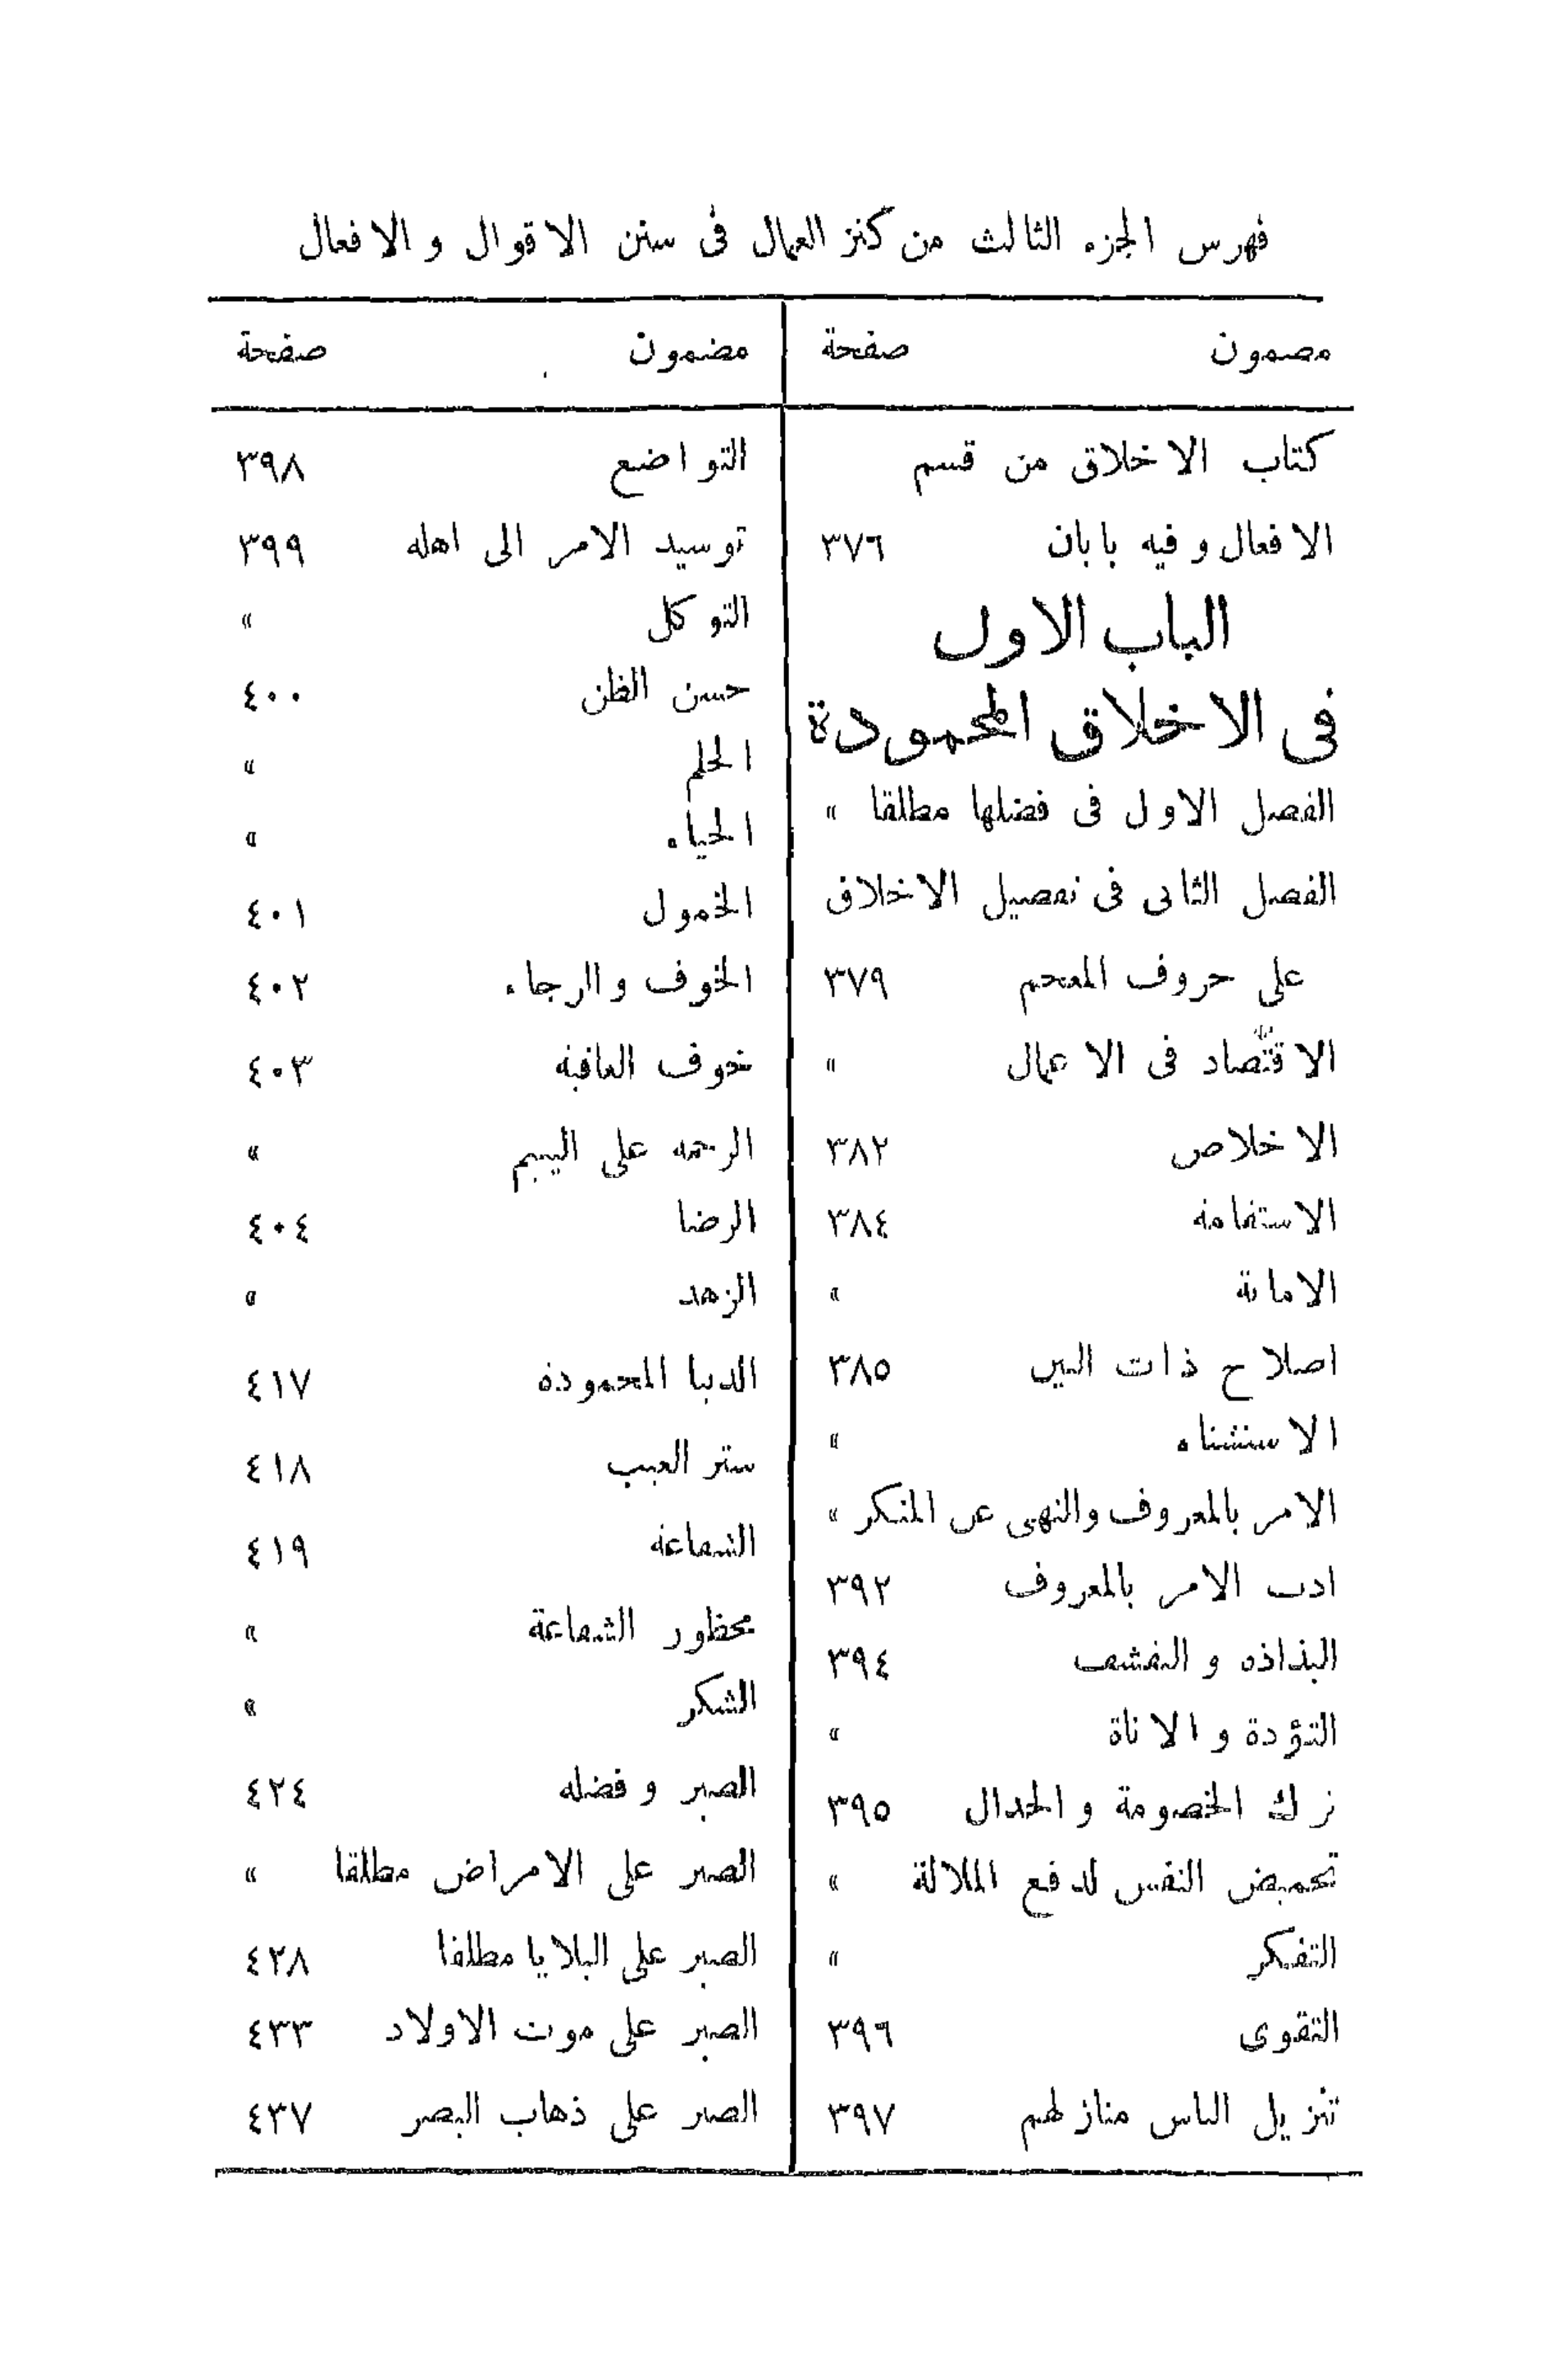 فهرس الجزء الثالث من كنز العمال فى سنن الاقوال والافعال
مضمون صفحة
كتاب الاخلاق من قسم
الافعال وفيه بابان ٣٧٦
الباب الاول
فى الاخلاق المحمودة
الفصل الاول فى فضلها مطلقا »
الفصل الثانى فى تفصيل الاخلاق
على حروف المعجم ٣٧٩
الاقتصاد فى الاعمال »
الاخلاص ٣٨٢
الاستقامة ٣٨٤
الامانة »
اصلاح ذات البين ٣٨٥
الاستثناء »
الامر بالمعروف والنهى عن المنكر »
ادب الامر بالمعروف ٣٩٢
البذاذة و التقشف ٣٩٤
التؤدة و الاناة »
ترك الخصومة و الجدال ٣٩٥
تحميض النفس لدفع الملالة »
التفكر »
التقوى ٣٩٦
تنزيل الناس منازلهم ٣٩٧
مضمون صفحة
التواضع ٣٩٨
توسيد الامر الى اهله ٣٩٩
التوكل »
حسن الظن ٤٠٠
الحلم »
الحياء »
الخمول ٤٠١
الخوف والرجاء ٤٠٢
خوف العاقبة ٤٠٣
الرحمة على اليتيم »
الرضا ٤٠٤
الزهد »
الدنيا المحمودة ٤١٧
ستر العيب ٤١٨
الشفاعة ٤١٩
محظور الشفاعة »
الشكر »
الصبر و فضله ٤٢٤
الصبر على الامراض مطلقا »
الصبر على البلايا مطلقا ٤٢٨
الصبر على موت الاولاد ٤٣٣
الصبر على ذهاب البصر ٤٣٧